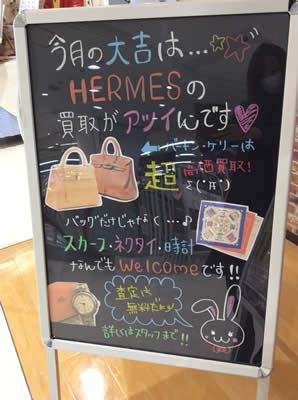 今月の大吉は...
HERMESの
買取がアツイんです
←バーキン・ケリーは
超高価買取!
Σ(°Д°)
バッグだけじゃなく...♪
スカーフ・ネクタイ・時計
なんでもWelcomeです!!
査定は
無料だよ♪
詳しくはスタッフまで!!